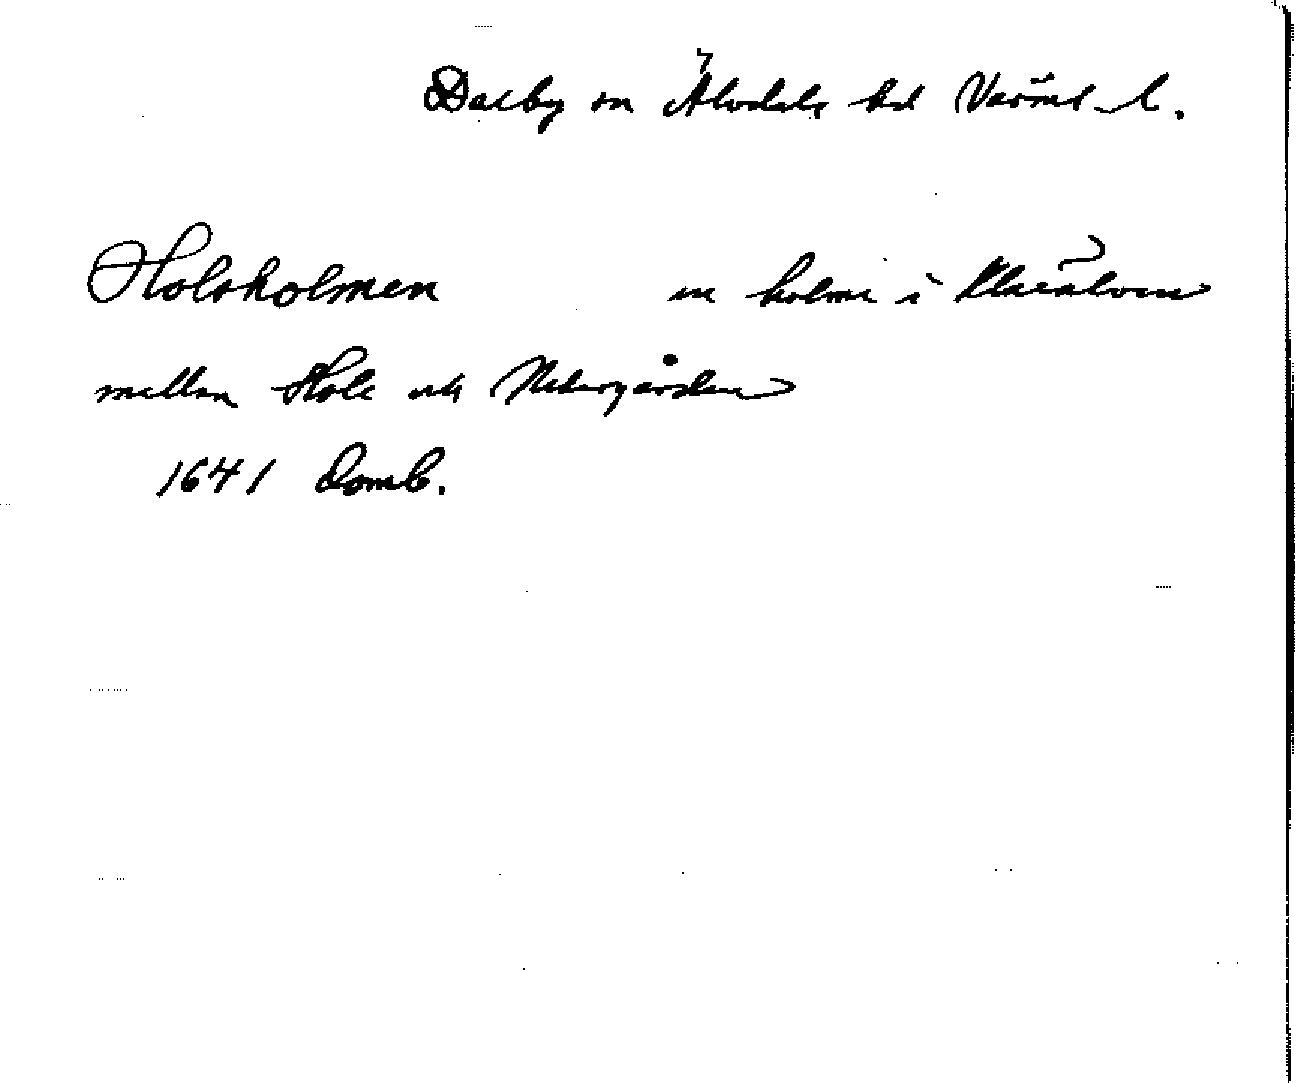 Dalby sn Älvdals hd Värml l.
Holsholmen en holme i Klarälven
mellan Hole och Nedergården
1641 Domb.